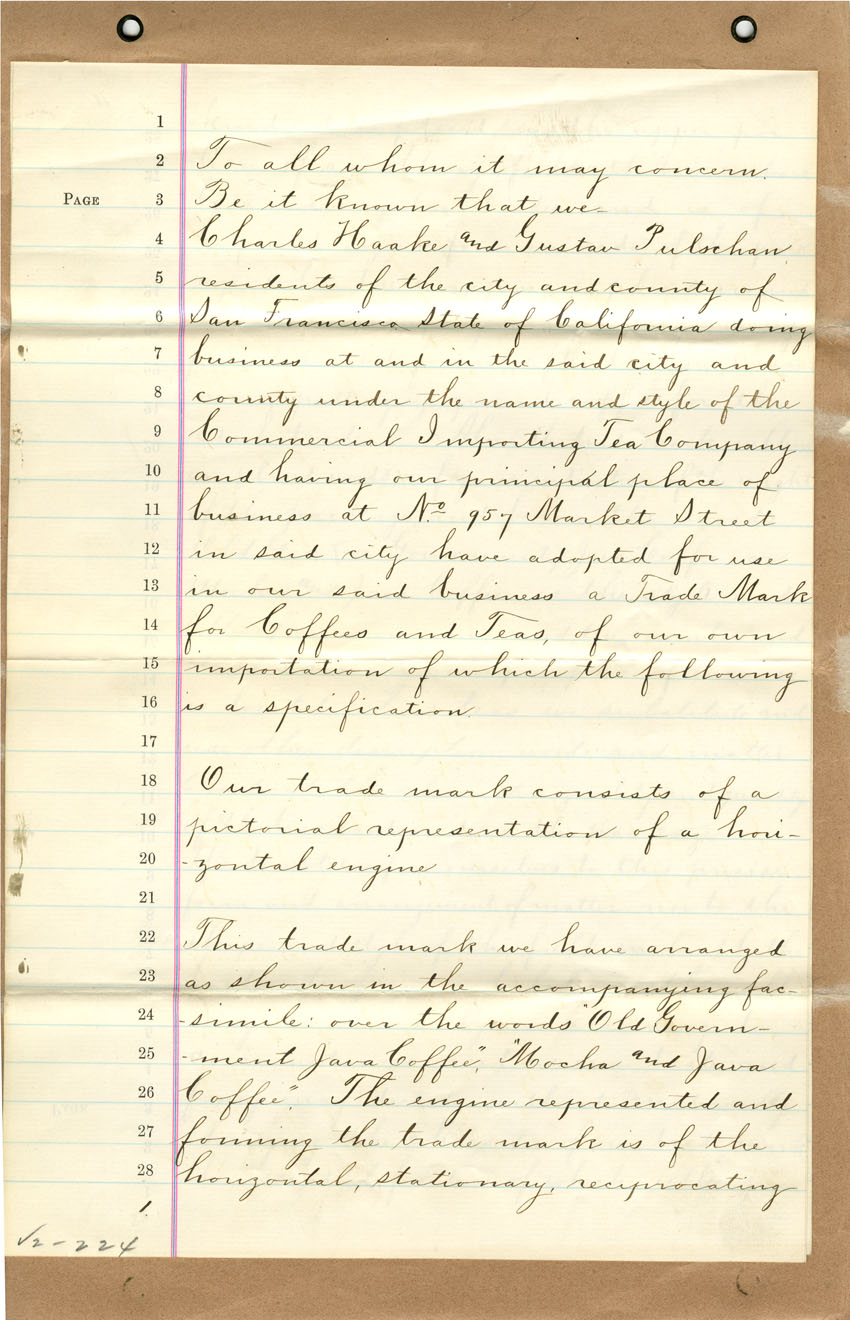 1
2 To all whom it may concern.
PAGE 3 Be it known that we
4 Charles Haake and Gustav Pulschan
5 residents of the city and county of
6 San Francisco State of California doing
7 business at and in the said city and
8 county under the name and style of the
9 Commercial Importing Tea Company
10 and having our principal place of
11 business at No. 957 Market Street
12 in said city have adopted for use
13 in our said business a Trade Mark
14 for Coffees and Teas, of our own
15 importation of which the following
16 is a specification.
17
18 Our trade mark consists of a
19 pictorial representation of a hori-
20 -zontal engine
21
22 This trade mark we have arranged
23 as shown in the accompanying fac-
24 -simile: over the words "Old Govern-
25 -ment Java Coffee", "Mocha and Java
26 Coffee". The engine represented and
27 forming the trade mark is of the
28 horizontal, stationary, reciprocating
1.
V2-224